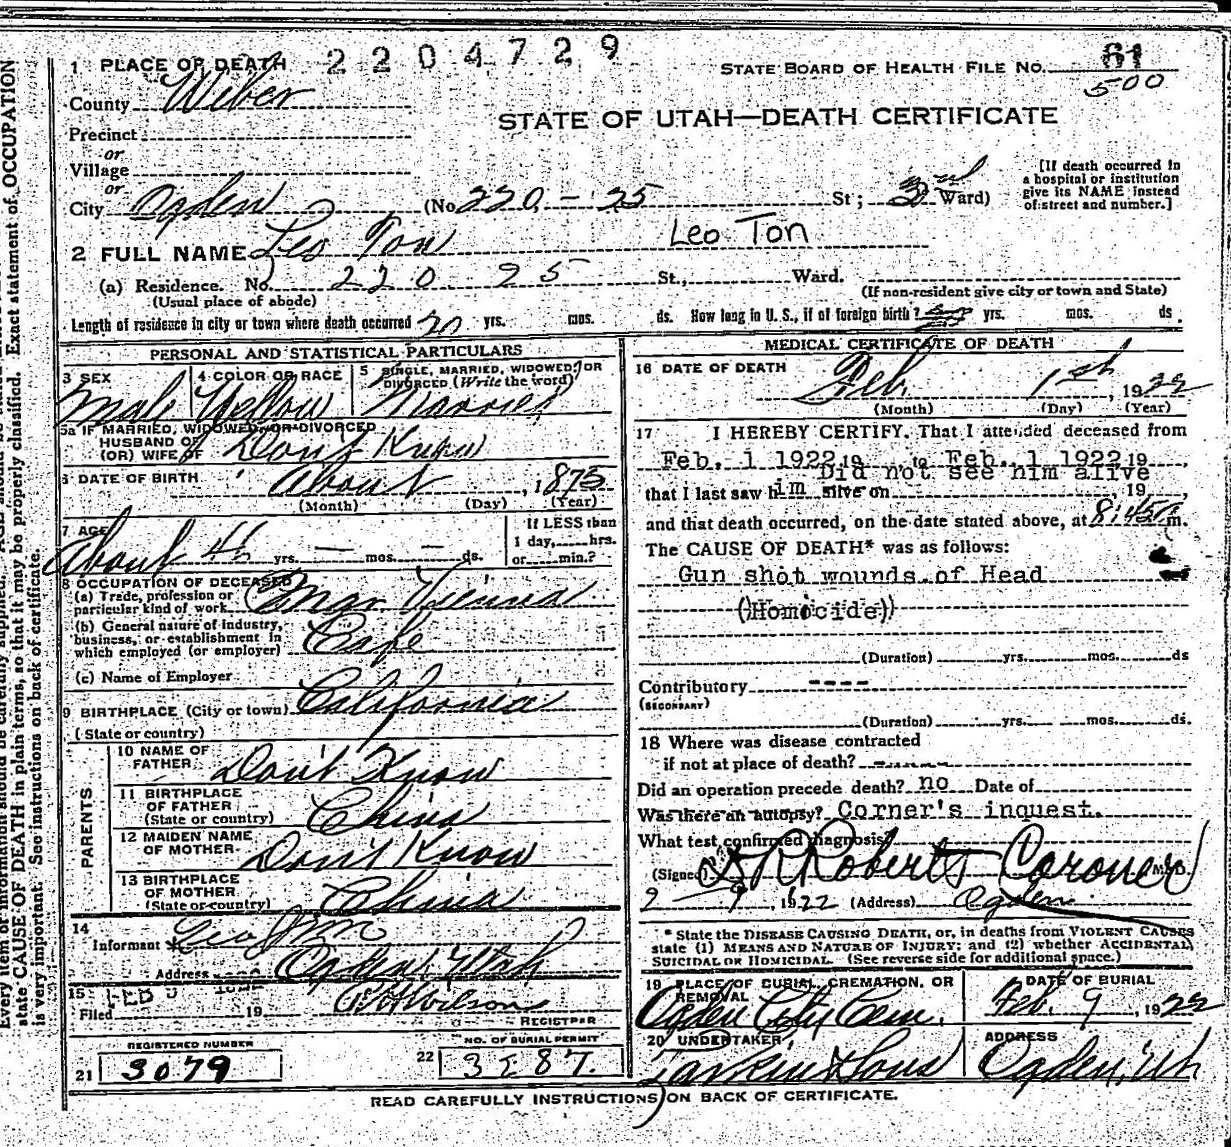 2204729
1 PLACE OF DEATH
STATE BOARD OF HEALTH FILE NO. 61
500
County Weber
STATE OF UTAH—DEATH CERTIFICATE
Precinct
or
Village
or
City Ogden (No. 220 - 25 St; 3rd Ward)
[If death occurred in
a hospital or institution
give its NAME instead
of street and number.]
2 FULL NAME Leo Ton Leo Ton
(a) Residence. No. 220 25 St., Ward.
(Usual place of abode) (If non-resident give city or town and State)
Length of residence in city or town where death occurred 20 yrs. mos. ds. How long in U. S., if of foreign birth? yrs. mos. ds.
PERSONAL AND STATISTICAL PARTICULARS
3 SEX 4 COLOR OR RACE 5 SINGLE, MARRIED, WIDOWED, OR
DIVORCED (Write the word)
Male Yellow Married
5a IF MARRIED, WIDOWED, OR DIVORCED
HUSBAND OF
(OR) WIFE OF Don't Know
6 DATE OF BIRTH About , 1875
(Month) (Day) (Year)
7 AGE If LESS than
1 day, hrs.
About yrs. — mos. — ds. or min.?
8 OCCUPATION OF DECEASED
(a) Trade, profession or
particular kind of work Mgr Vienna
(b) General nature of industry,
business, or establishment in
which employed (or employer) Cafe
(c) Name of Employer
9 BIRTHPLACE (City or town) California
(State or country)
PARENTS
10 NAME OF
FATHER Don't Know
11 BIRTHPLACE
OF FATHER
(State or country) China
12 MAIDEN NAME
OF MOTHER Don't Know
13 BIRTHPLACE
OF MOTHER
(State or country) China
14
Informant Geo
Address Ogden Utah
15 FEB
Filed 19 Wilson
REGISTRAR
REGISTERED NUMBER NO. OF BURIAL PERMIT
21 3079 22
MEDICAL CERTIFICATE OF DEATH
16 DATE OF DEATH
Feb. 1st , 1922
(Month) (Day) (Year)
17 I HEREBY CERTIFY. That I attended deceased from
Feb. 1 1922 19 to Feb. 1 1922 19
Did not see him alive
that I last saw him alive on , 19 ,
and that death occurred, on the date stated above, at 8:45 m.
The CAUSE OF DEATH* was as follows:
Gun shot wounds of Head
(Homocide)
(Duration) yrs. mos. ds
Contributory ----
(SECONDARY)
(Duration) yrs. mos. ds.
18 Where was disease contracted
if not at place of death? -----
Did an operation precede death? no Date of
Was there an autopsy? Corner's inquest.
What test confirmed diagnosis
(Signed) Roberts Coroner M. D.
2 - 9, 1922 (Address) Ogden
* State the DISEASE CAUSING DEATH, or, in deaths from VIOLENT CAUSES
state (1) MEANS AND NATURE OF INJURY; and (2) whether ACCIDENTAL,
SUICIDAL OR HOMICIDAL. (See reverse side for additional space.)
19 PLACE OF BURIAL, CREMATION, OR
REMOVAL DATE OF BURIAL
Ogden City Cem. Feb. 9, 1922
20 UNDERTAKER ADDRESS
Larkin & Sons Ogden, Uth
READ CAREFULLY INSTRUCTIONS ON BACK OF CERTIFICATE.
state CAUSE OF DEATH in plain terms, so that it may be properly classified. Exact statement of OCCUPATION
is very important. See instructions on back of certificate.